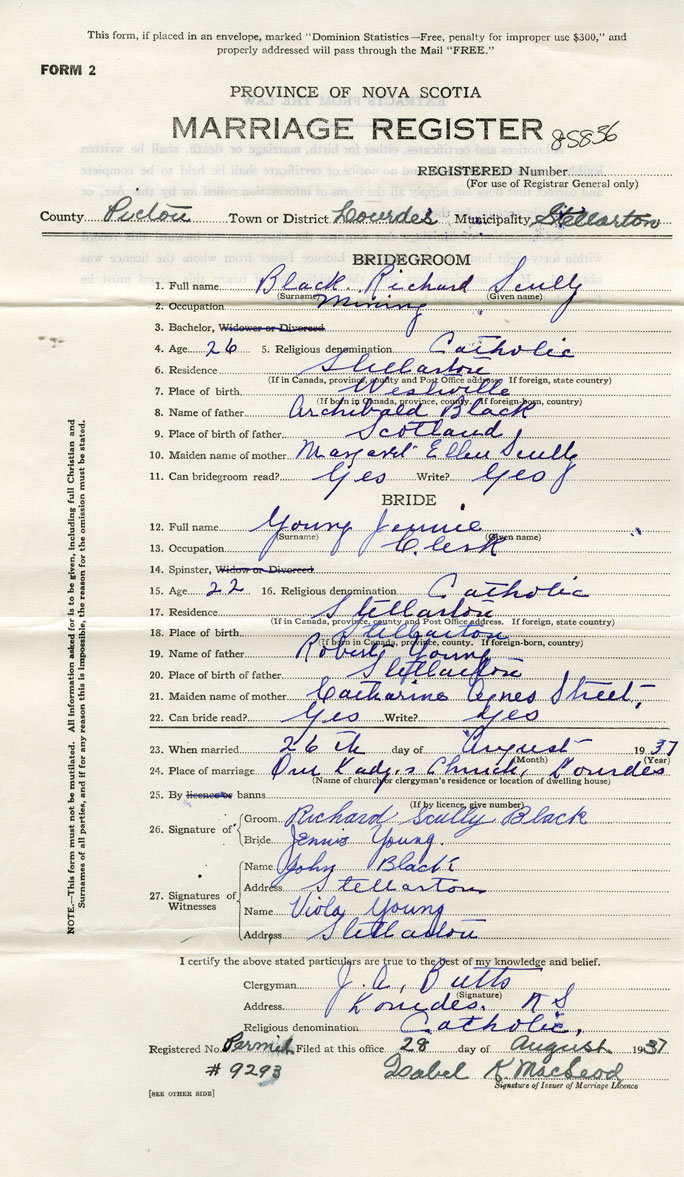 This form, if placed in an envelope, marked "Dominion Statistics—Free, penalty for improper use $300," and
properly addressed will pass through the Mail "FREE."
FORM 2
PROVINCE OF NOVA SCOTIA
MARRIAGE REGISTER 85836
REGISTERED Number
(For use of Registrar General only)
County Pictou Town or District Lourdes Municipality Stellarton
BRIDEGROOM
1. Full name Black Richard Scully
(Surname) (Given name)
2. Occupation Mining
3. Bachelor, Widower or Divorced
4. Age 26 5. Religious denomination Catholic
6. Residence Stellarton
(If in Canada, province, county and Post Office address. If foreign, state country)
7. Place of birth Westville
(If born in Canada, province, county. If foreign-born, country)
8. Name of father Archibald Black
9. Place of birth of father Scotland
10. Maiden name of mother Margaret Ellen Scully
11. Can bridegroom read? Yes Write? Yes
BRIDE
12. Full name Young Jennie
(Surname) (Given name)
13. Occupation Clerk
14. Spinster, Widow or Divorced
15. Age 22 16. Religious denomination Catholic
17. Residence Stellarton
(If in Canada, province, county and Post Office address. If foreign, state country)
18. Place of birth Stellarton
(If born in Canada, province, county. If foreign-born, country)
19. Name of father Robert Young
20. Place of birth of father Stellarton
21. Maiden name of mother Catharine Agnes Street,
22. Can bride read? Yes Write? Yes
23. When married 26th day of August 1937
(Month) (Year)
24. Place of marriage Our Lady's Church, Lourdes
(Name of church or clergyman's residence or location of dwelling house)
25. By licence or banns
(If by licence, give number)
26. Signature of Groom Richard Scully Black
Bride Jennie Young.
27. Signatures of Witnesses
Name John Black
Address Stellarton
Name Viola Young
Address Stellarton
I certify the above stated particulars are true to the best of my knowledge and belief.
Clergyman J. A. Butts
(Signature)
Address Lourdes. N S
Religious denomination Catholic.
Registered No. Permit Filed at this office 28 day of August 1937
# 9293 Isabel K. MacLeod
Signature of Issuer of Marriage Licence
[SEE OTHER SIDE]
NOTE.—This form must not be mutilated. All information asked for is to be given, including full Christian and
Surnames of all parties, and if for any reason this is impossible, the reason for the omission must be stated.